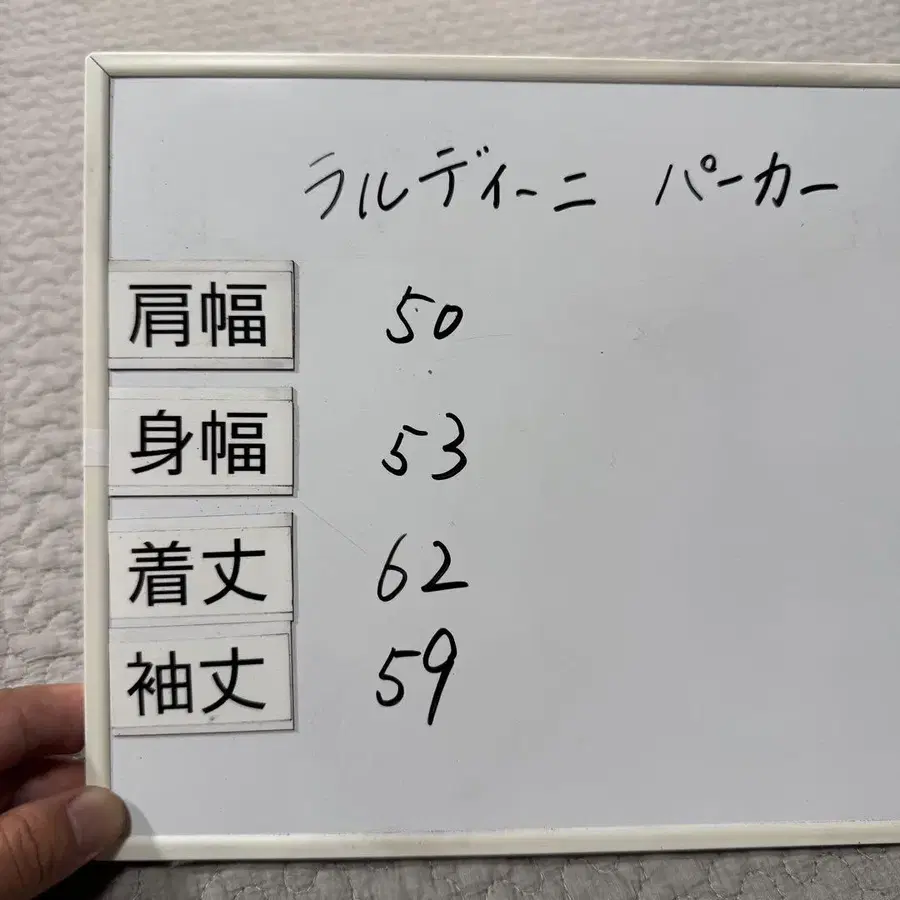 ラルディーニ パーカー
肩幅 50
身幅 53
着丈 62
袖丈 59